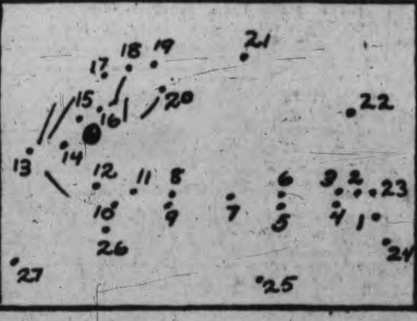 21
18 19
17
20
15
16
22
13
14
12
11 8 6 3 2 23
10 9 7 5 4 1
26
24
27
25